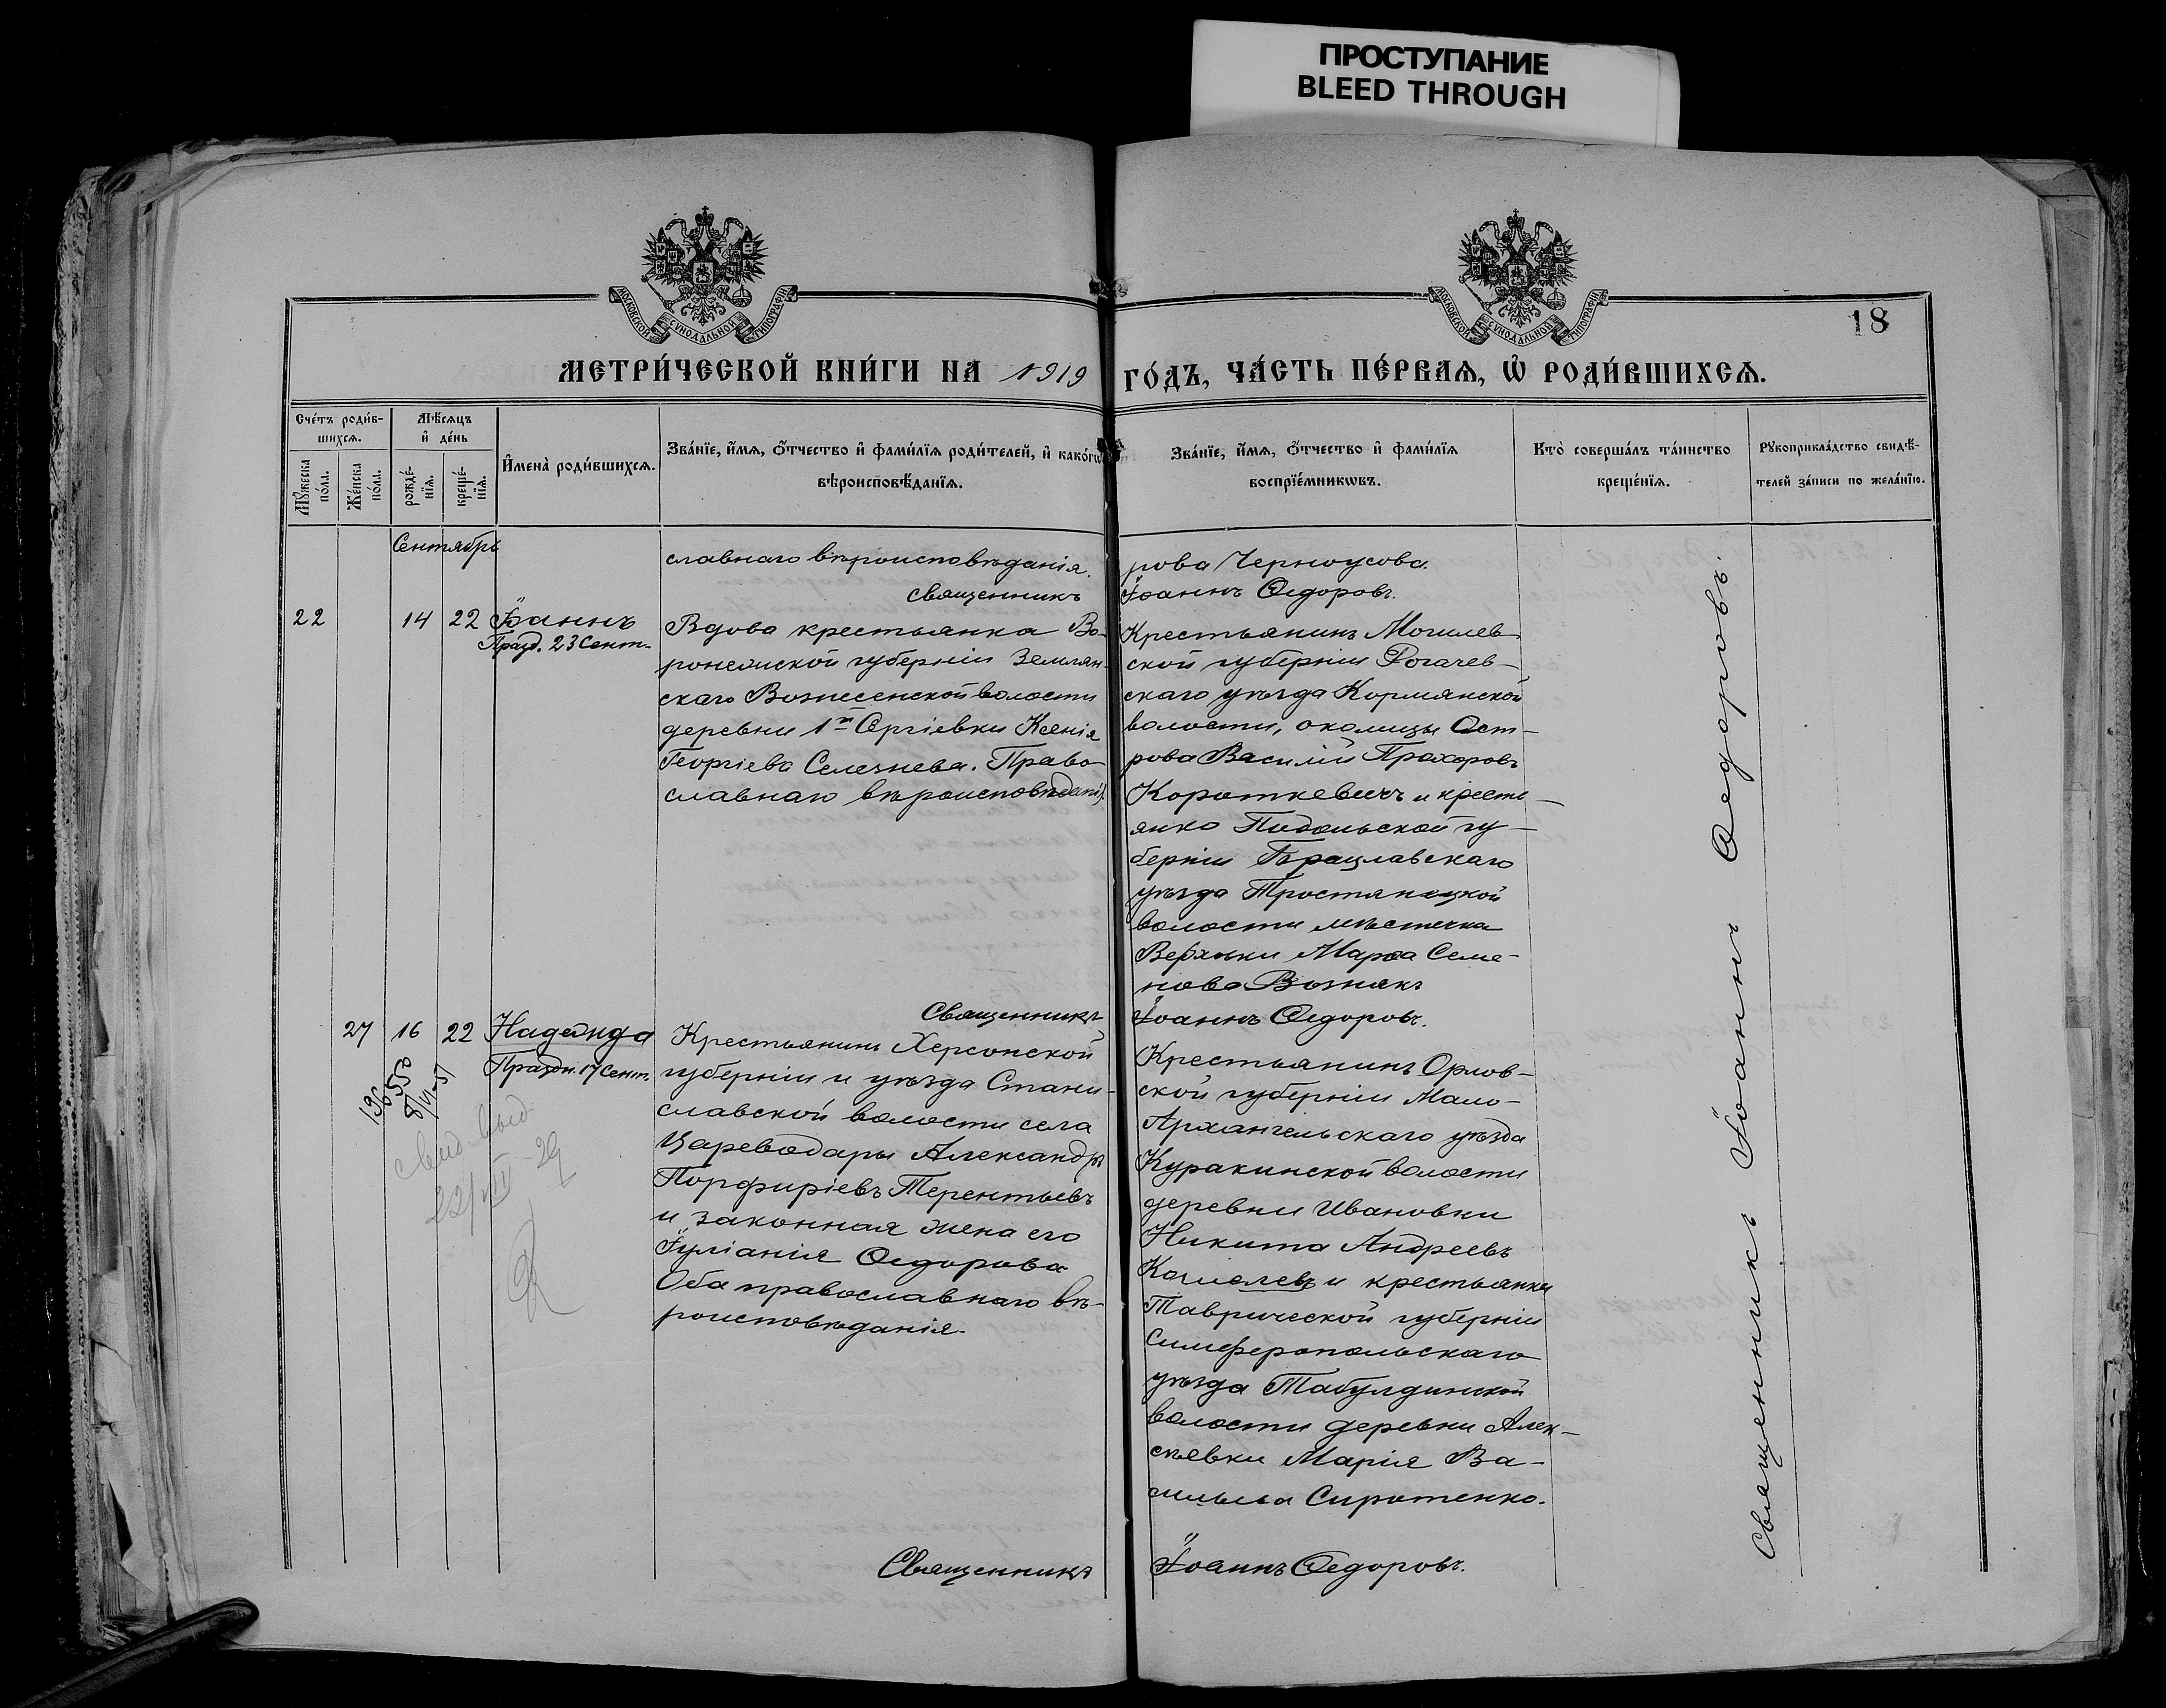 ПРОСТУПАНИЕ
BLEED THROUGH
МОСКОВСКОЙ СѴНОДАЛЬНОЙ ТИПОГРАФІИ
МОСКОВСКОЙ СѴНОДАЛЬНОЙ ТИПОГРАФІИ
18
МЕТРИ́ЧЕСКОЙ КНИ́ГИ НА 1919 ГО́ДЪ, ЧА́СТЬ ПЕ́РВАѦ, Ѡ҆ РОДИ́ВШИХСѦ.
Сче́тъ роди́в-
шихсѧ.
Мꙋ́жеска по́ла.
Же́нска по́ла.
Мѣ́сѧцъ
и҆ де́нь
рожде́-
нїѧ.
креще́-
нїѧ.
И҆мена̀ роди́вшихсѧ.
Зва́нїе, и҆́мѧ, ѻ҆́тчество и҆ фами́лїѧ роди́телей, и҆ како́гѡ
вѣроисповѣ́данїѧ.
Зва́нїе, и҆́мѧ, ѻ҆́тчество и҆ фами́лїѧ
воспрїе́мникѡвъ.
Кто̀ соверша́лъ та́инство
креще́нїѧ.
Рꙋкоприкла́дство свидѣ́-
телей за́писи по жела́нїю.
Сентябрь
славнаго вѣроисповѣданія.
Священникъ
рова Черноусова.
Іоаннъ Ѳедоровъ.
22 14 22 Іоаннъ
Празд. 23 Сент.
Вдова крестьянка Во-
ронежской губерніи Землян-
скаго Вознесенской волости
деревни 1й Сергіевки Ксенія
Георгіева Селезнева. Право-
славнаго вѣроисповѣданія.
Крестьянинъ Могилев-
ской губерніи Рогачев-
скаго уѣзда Кормянской
волости, околицы Ост-
рова Василій Прохоровъ
Короткевичъ и кресть-
янка Подольской гу-
берніи Брацлавскаго
уѣзда Тростянецкой
волости мѣстечка
Верховки Марѳа Семе-
нова Вознякъ
Священникъ
Іоаннъ Ѳедоровъ.
27 16 22 Надежда
Праздн. 17 Сент.
8/VI-51
свид. выд.
22/VII-29
Крестьянинъ Херсонской
губерніи и уѣзда Стани-
славской волости села
Цареводары Александръ
Порфиріевъ Терентьевъ
и законная жена его
Іуліанія Ѳедорова
Оба православнаго вѣ-
роисповѣданія.
Крестьянинъ Орлов-
ской губерніи Мало-
Архангельскаго уѣзда
Куракинской волости
деревни Ивановки
Никита Андреевъ
и крестьянка
Таврической губерніи
Симферопольскаго
уѣзда Табулдинской
волости деревни Алек-
сѣевки Марія Ва-
сильева Сиротенко.
Священникъ
Іоаннъ Ѳедоровъ.
Священникъ Іоаннъ Ѳедоровъ.